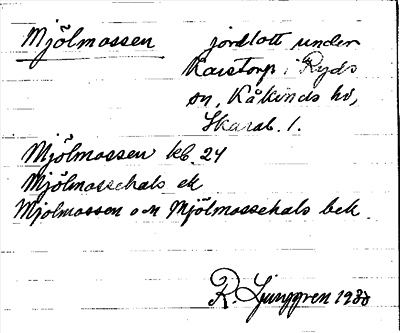 Mjölmossen jordlott under
Karstorp i Ryds
sn, Kåkinds hd,
Skarab. l.
Mjölmossen kb. 24
Mjölmossehals ek
Mjölmossen o n Mjölmossehals bek.
R. Ljunggren